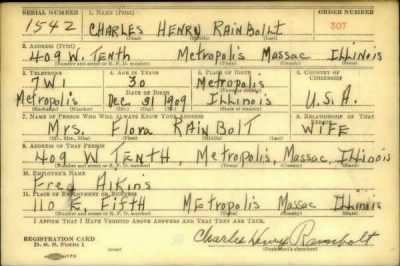 SERIAL NUMBER 1. NAME (Print) ORDER NUMBER
1542 CHARLES HENRY RAINBOLT 307
(First) (Middle) (Last)
2. ADDRESS (Print)
409 W. TENTH METROPOLIS MASSAC ILLINOIS
(Number and street or R. F. D. number) (Town) (County) (State)
3. TELEPHONE 4. AGE IN YEARS 5. PLACE OF BIRTH 6. COUNTRY OF CITIZENSHIP
7W1 30 Metropolis
DATE OF BIRTH (Town or county)
Metropolis Dec. 31 1909 Illinois U.S.A.
(Exchange) (Number) (Mo.) (Day) (Yr.) (State or country)
7. NAME OF PERSON WHO WILL ALWAYS KNOW YOUR ADDRESS 8. RELATIONSHIP OF THAT PERSON
Mrs. Flora RAINBOLT WIFE
(Mr., Mrs., Miss) (First) (Middle) (Last)
9. ADDRESS OF THAT PERSON
409 W TENTH, METROPOLIS, MASSAC, ILLINOIS
(Number and street or R. F. D. number) (Town) (County) (State)
10. EMPLOYER'S NAME
Fred Aikins
11. PLACE OF EMPLOYMENT OR BUSINESS
110 E. FIFTH METROPOLIS MASSAC ILLINOIS
(Number and street or R. F. D. number) (Town) (County) (State)
I AFFIRM THAT I HAVE VERIFIED ABOVE ANSWERS AND THAT THEY ARE TRUE.
REGISTRATION CARD
D. S. S. Form 1
Charles Henry Rainbolt
(Registrant's signature)